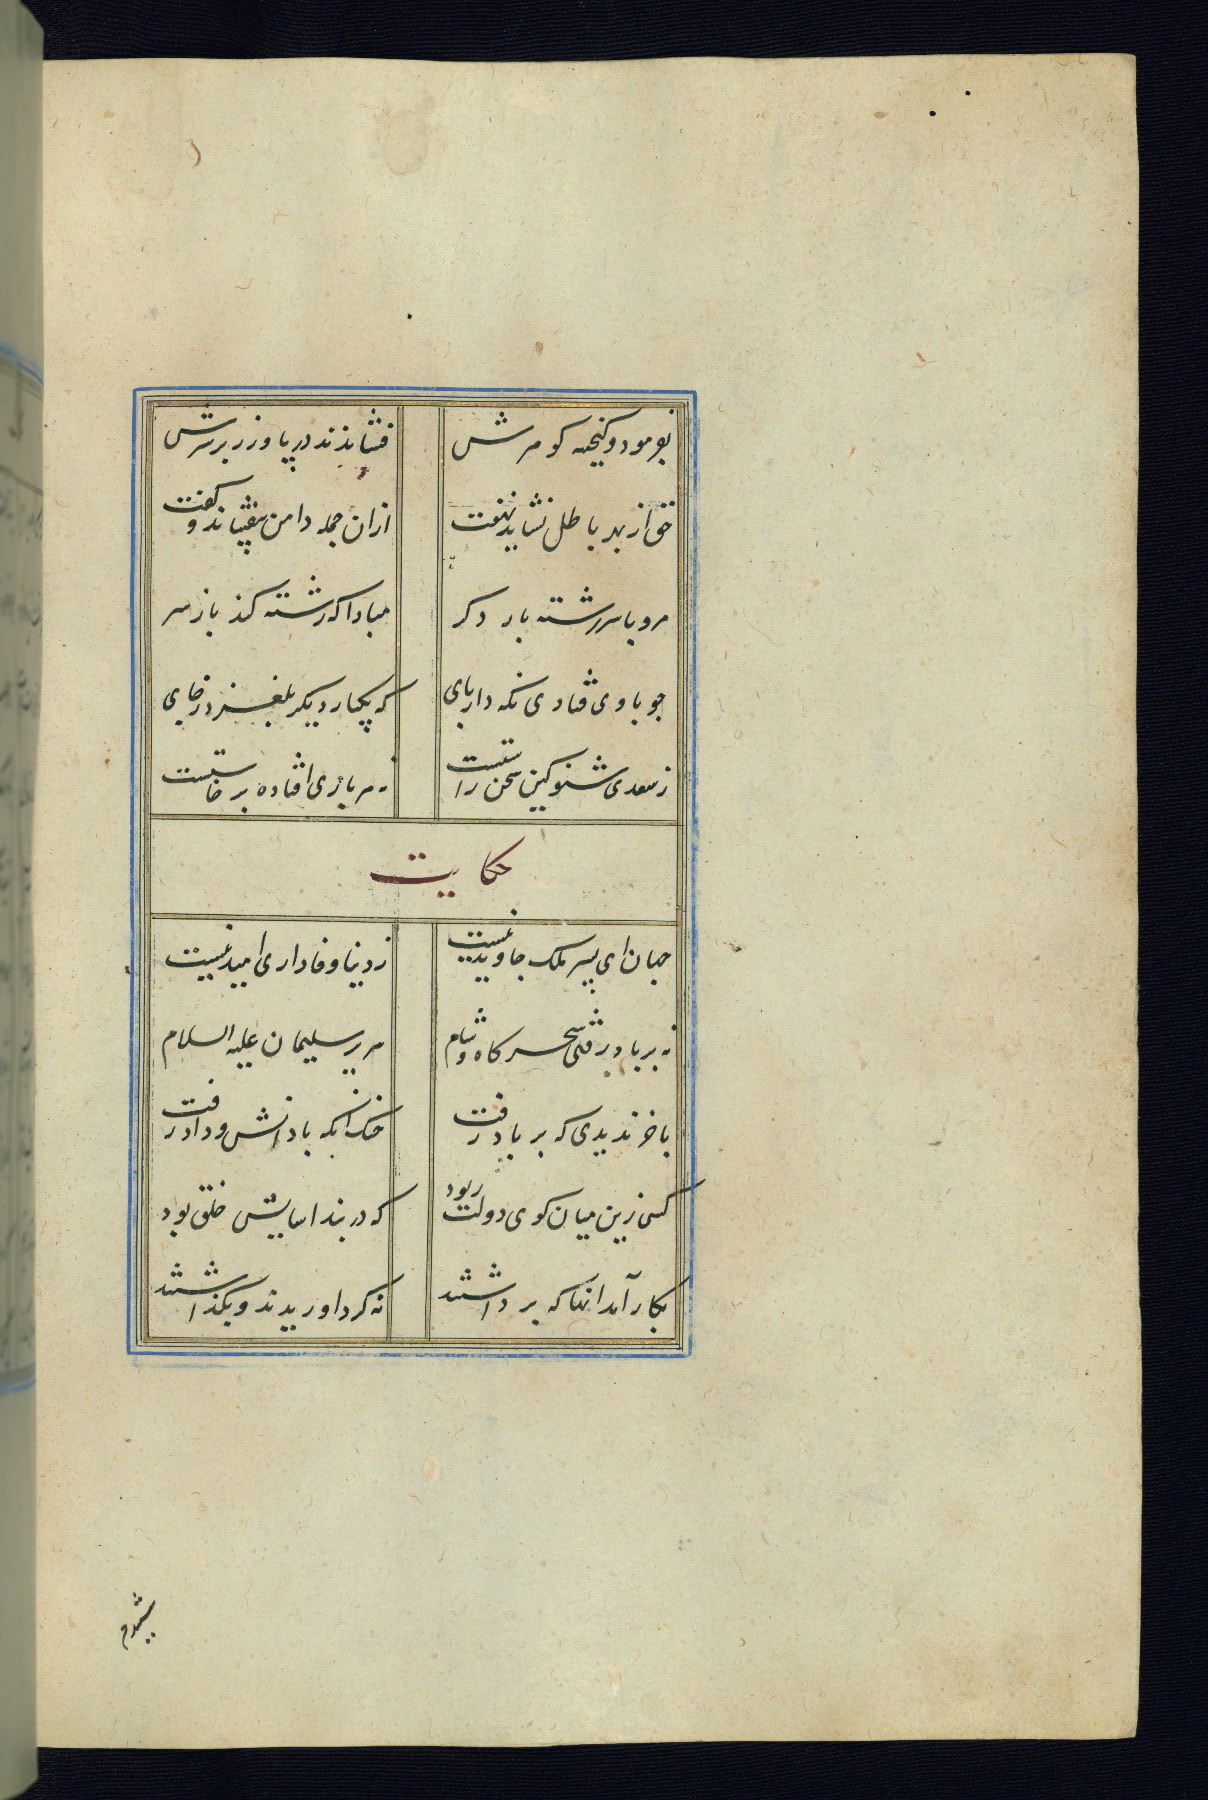 بفرمود و گنجینه گوهرش فشاندند در پا و زر بر سرش
حق از بهر باطل نشاید نهفت ازان جمله دامن بیفشاند و گفت
مرو با سر رشته بار دگر مبادا که رشته کند باز سر
چو باری فتادی نگه دار پای که یکبار دیگر بلغزد ز جای
ز سعدی شنو کین سخن راستست نه هر بازی افتاده برخاستست
حکایت
جهان ای پسر ملک جاوید نیست ز دنیا وفاداری امید نیست
نه بر باد رفتی سحرگاه و شام سریر سلیمان علیه السلام
باخر ندیدی که بر باد رفت خنک آنکه با دانش و داد رفت
کسی زین میان گوی دولت ربود که در بند اسایش خلق بود
بکار آمد انها که برداشتند نه گرد اوریدند و بگذاشتند
شنیدم